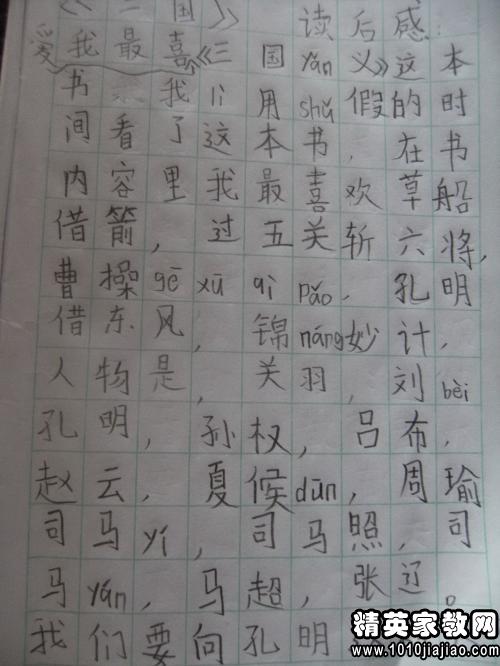 《三国》读后感:
爱我最喜《三国yán义》这本
书 我lì用shǔ假的时
间看了这本书，在书
内容里我最喜欢草船
借箭，过五关斩六将，
曹操gē xū qì pǎo，孔明
借东风，锦náng妙计，
人物是，关羽，刘bèi
孔明，孙权，吕布，
赵云，夏候dūn，周瑜
司马yí，司马照，司
马yán，马超，张辽。
我们要向孔明
精英家教网
www.1010jiajiao.com